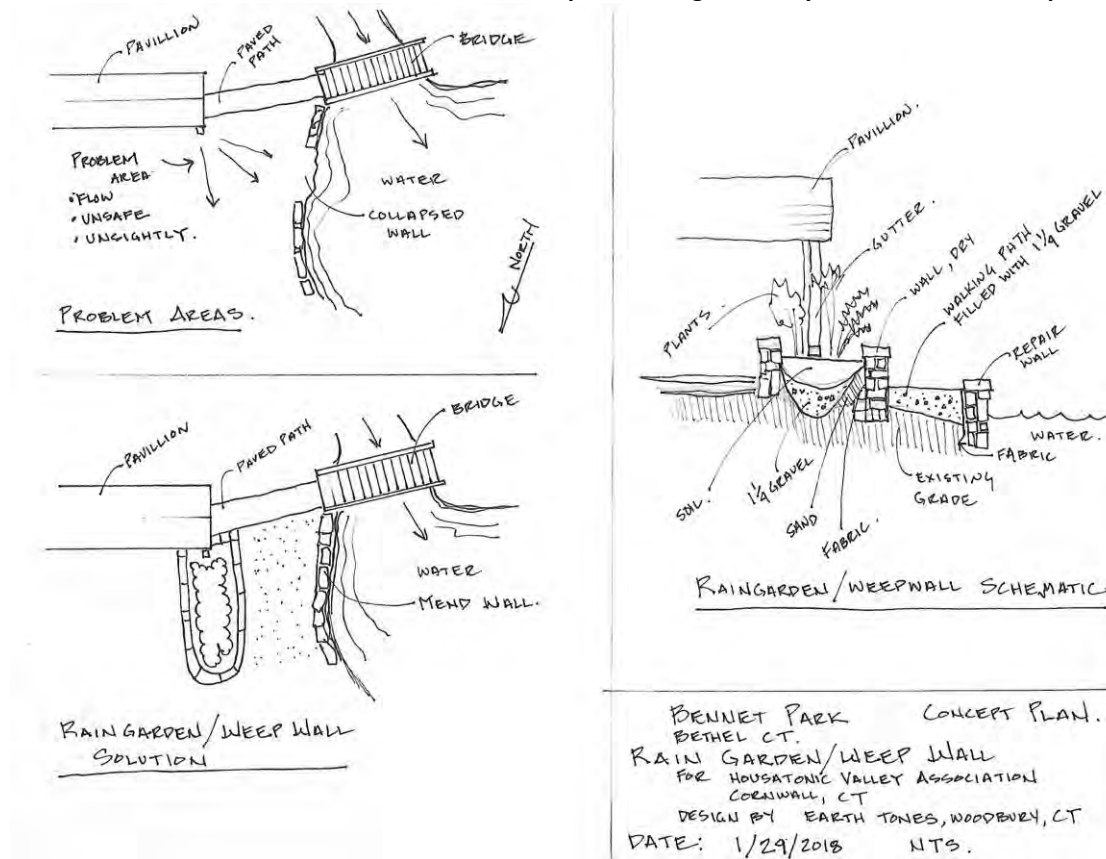 PAVILLION
PAVED
PATH
BRIDGE
PROBLEM
AREA
• FLOW
• UNSAFE
• UNSIGHTLY.
WATER
COLLAPSED
WALL
NORTH
PROBLEM AREAS.
PAVILLION
PAVED PATH
BRIDGE
WATER
MEND WALL.
RAINGARDEN/WEEP WALL
SOLUTION
PAVILLION.
GUTTER.
WALL, DRY
WALKING PATH
FILLED WITH 1 1/4 GRAVEL
PLANTS.
REPAIR
WALL
WATER.
FABRIC
EXISTING
GRADE
SOIL.
1 1/4 GRAVEL
SAND
FABRIC.
RAINGARDEN/WEEPWALL SCHEMATIC.
BENNET PARK CONCEPT PLAN.
BETHEL CT.
RAIN GARDEN/WEEP WALL
FOR HOUSATONIC VALLEY ASSOCIATION
CORNWALL, CT
DESIGN BY EARTH TONES, WOODBURY, CT
DATE: 1/29/2018 NTS.